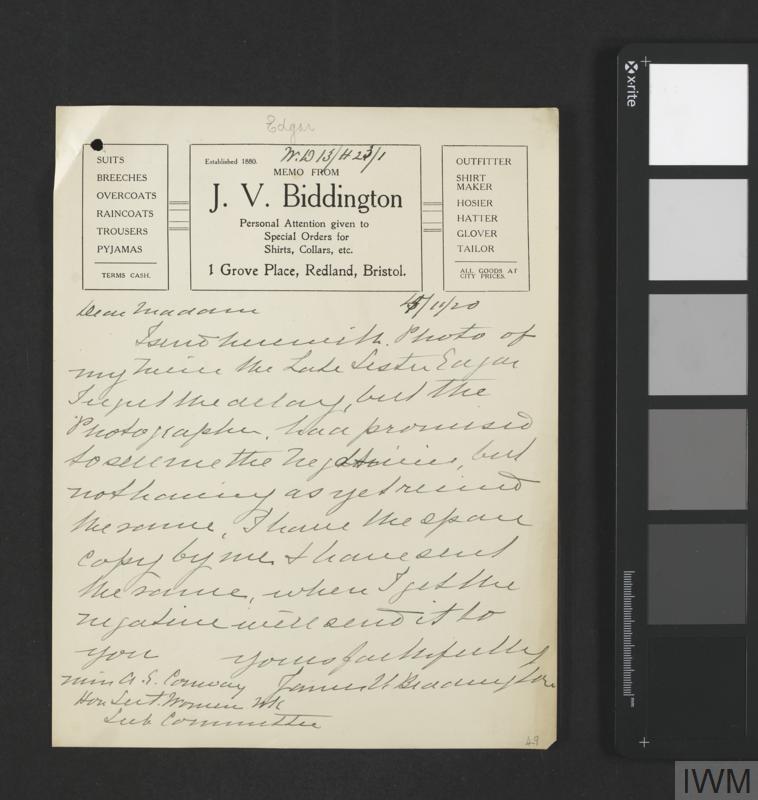 Edgar
SUITS
BREECHES
OVERCOATS
RAINCOATS
TROUSERS
PYJAMAS
TERMS CASH.
Established 1880.
MEMO FROM
J. V. Biddington
Personal Attention given to
Special Orders for
Shirts, Collars, etc.
1 Grove Place, Redland, Bristol.
OUTFITTER
SHIRT
MAKER
HOSIER
HATTER
GLOVER
TAILOR
ALL GOODS AT
CITY PRICES.
/11/20
Dear Madam
I send herewith Photo of
my Niece the Late Sister Edgar
I regret the delay, but the
Photographer, had promised
to sell me the Negative, but
not having as yet received
the same, I have the spare
copy by me & have sent
the same, when I get the
negative will send it to
you yours faithfully
Miss A. E. Conway James V Biddington
Hon Sect. Women Wk
Sub Committee
49
x-rite
mm
IWM